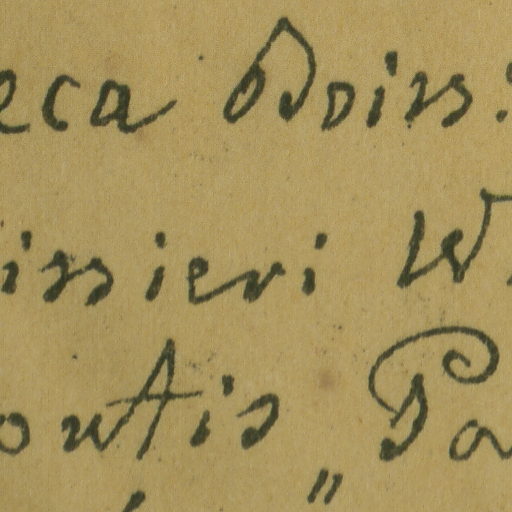 eca Boiss:
issieri W
ontis Pa
"